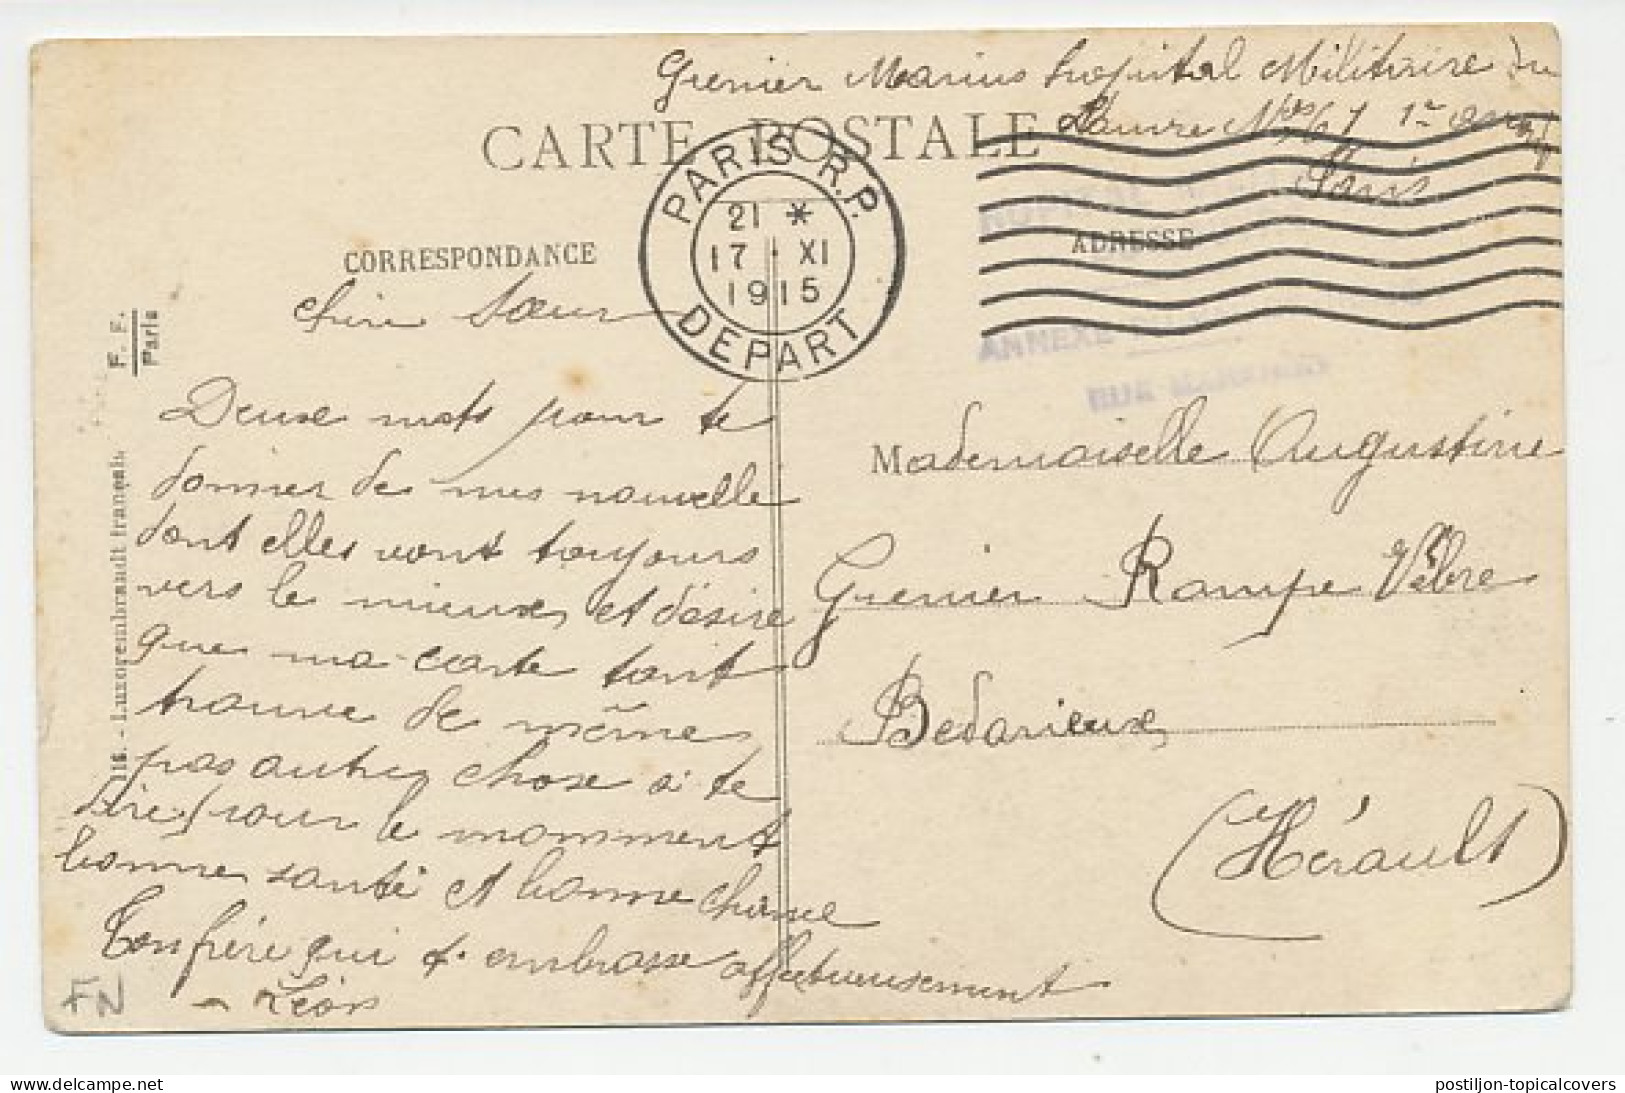 Grenier Marius hopital Militaire du
Louvre Nos 67 1er
Paris
CARTE POSTALE
PARIS R.P.
21 *
17 XI
1915
DEPART
HOPITAL
ANNEXE
RUE
CORRESPONDANCE
ADRESSE
chère Sœur
Deuxe mots pour te
donner de mes nouvelle
dont elles vont toujours
vers le mieux, et désire
que ma carte tant
trouve de même,
pas autres chose a te
dire pour le momment
bonne santé et bonne chance
Ton frère qui t. embrasse affectueusement
Léon
Mademoiselle Augustine
Grenier Rampe Vèbre
Bedarieux
(Hérault)
F. F.
Paris
116. - Luxogembrandt français
FN
postiljon-topicalcovers